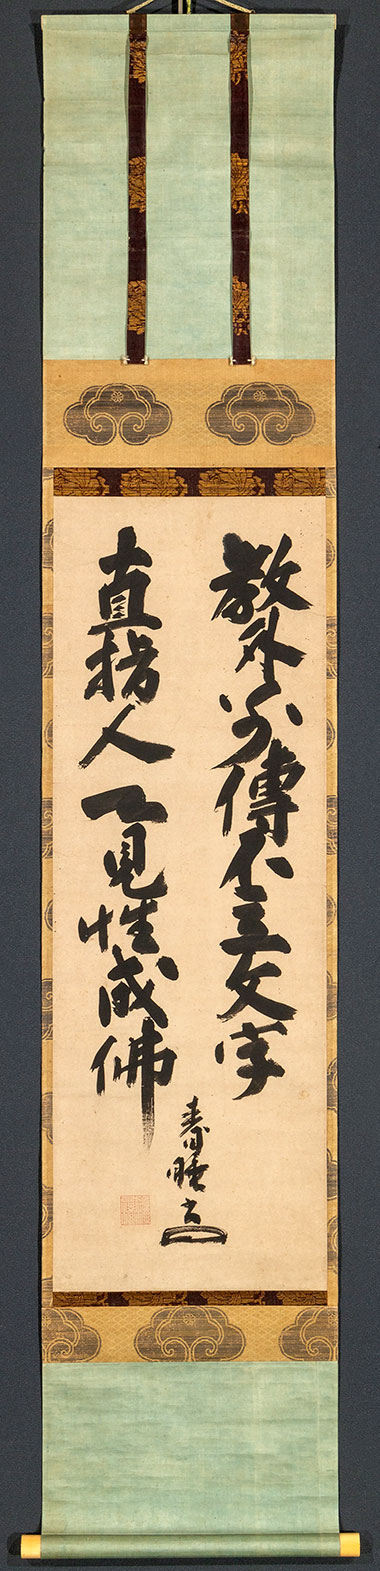 教外別傳不立文字
直指人心見性成佛
春睡